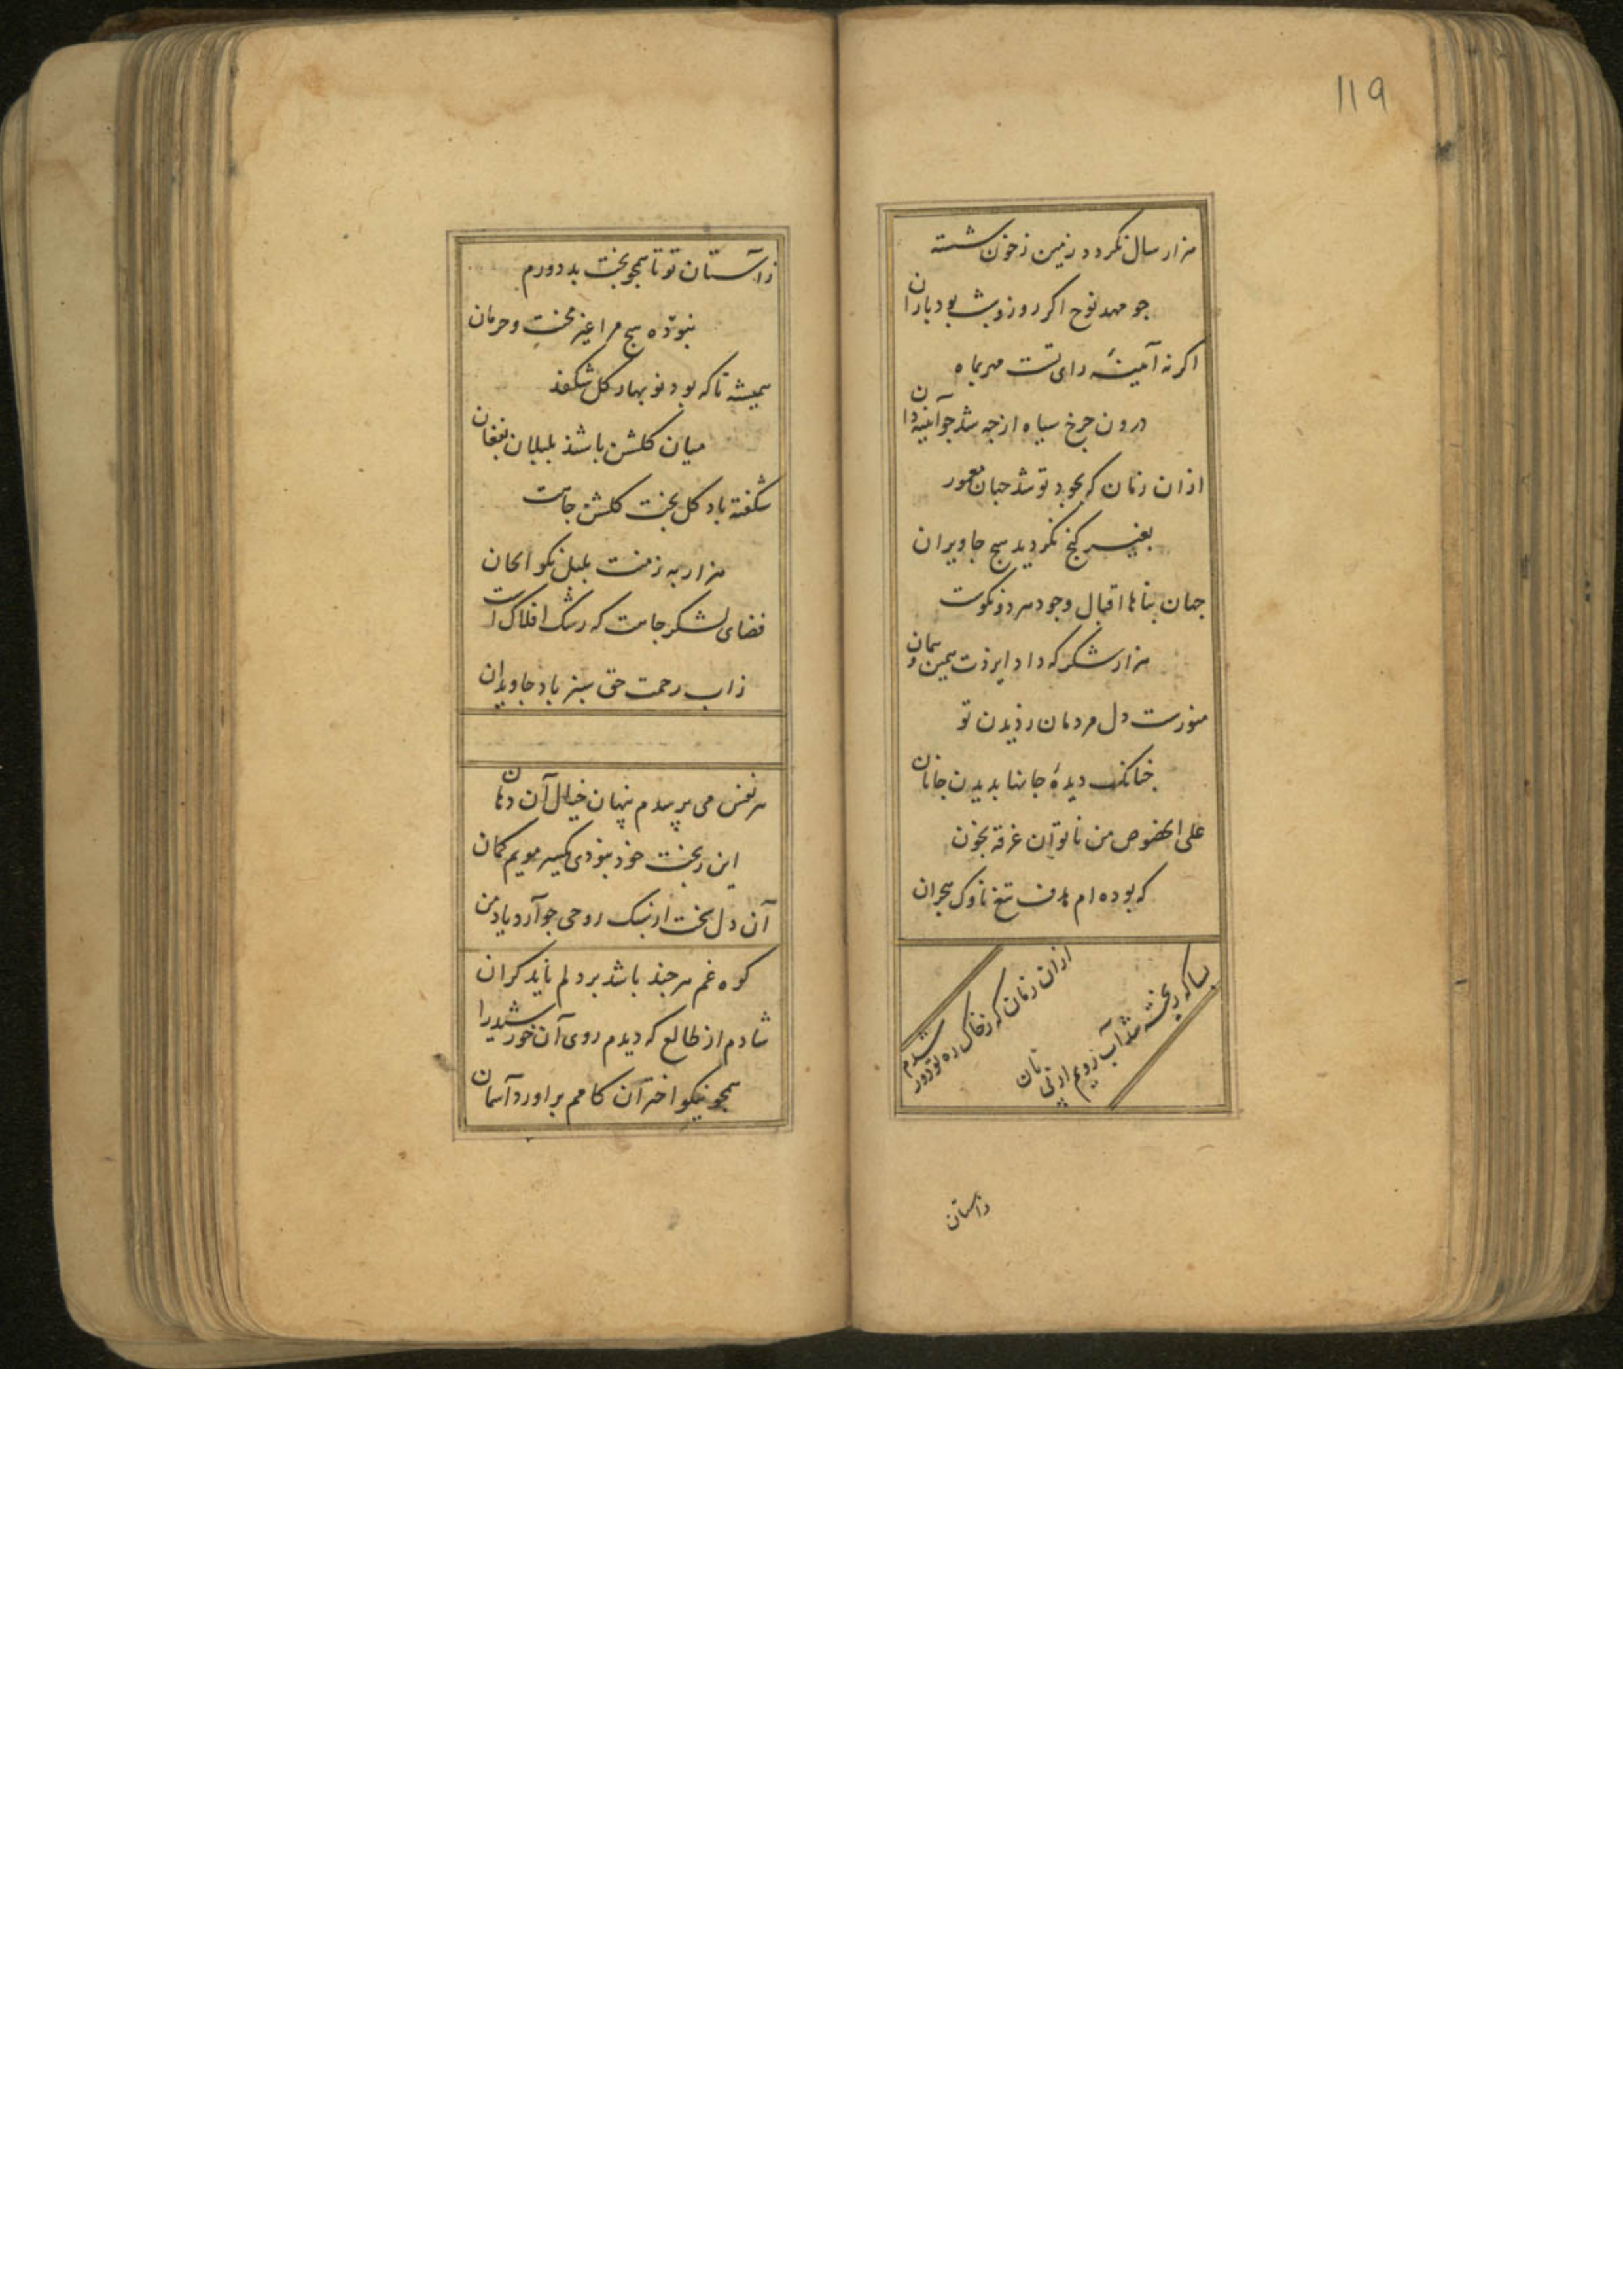 119
هزار سال نکردد زمین ز خون شسته
جو مهد نوح اکر روز و شب بود باران
اکر نه آمینهٔ رای تست مهر بماه
درون جرخ سیاه از جه شد جو آینه دان
ازان زمان که بجود تو شد جهان معمور
بغیر کنج نکردید هیج جا ویران
جهان بناها اقبال وجود هر دو نکوست
هزار شکر که داد ایزدت همین و همان
منورست دل مردمان ز دیدن تو
جنانک دیدهٔ جانها بدیدن جانان
علی الخصوص من ناتوان غرقه بخون
که بوده ام هدف تیغ ناوک هجران
ازان زمان که ز خاک ره تو دور شدم
بسا که ریخته شد آب رویم از پی نان
زاستان
ز آستان تو تا همجو بخت بد دورم
نبوده هیج مرا غیر محنت و حرمان
همیشه تا که بود نو بهار کل شکفد
میان کلشن باشد بلبلان بفغان
شکفته باد کل بخت کلشن جاهت
هزار به ز منت بلبل نکو الحان
فضای لشکر جاهت که رشک افلاک است
ز اب رحمت حق سبز باد جاویدان
هر نفس می پرسدم پنهان خیال آن دهان
این ز بخت خود نبودی یکسر مویم کمان
آن دل سخت ار سبک روحی جو آرد یاد من
کوه غم هر جند باشد بر دلم ناید کران
شادم از طالع که دیدم روی آن خورشید را
همجو نیکو اختران کامم براورد آسمان